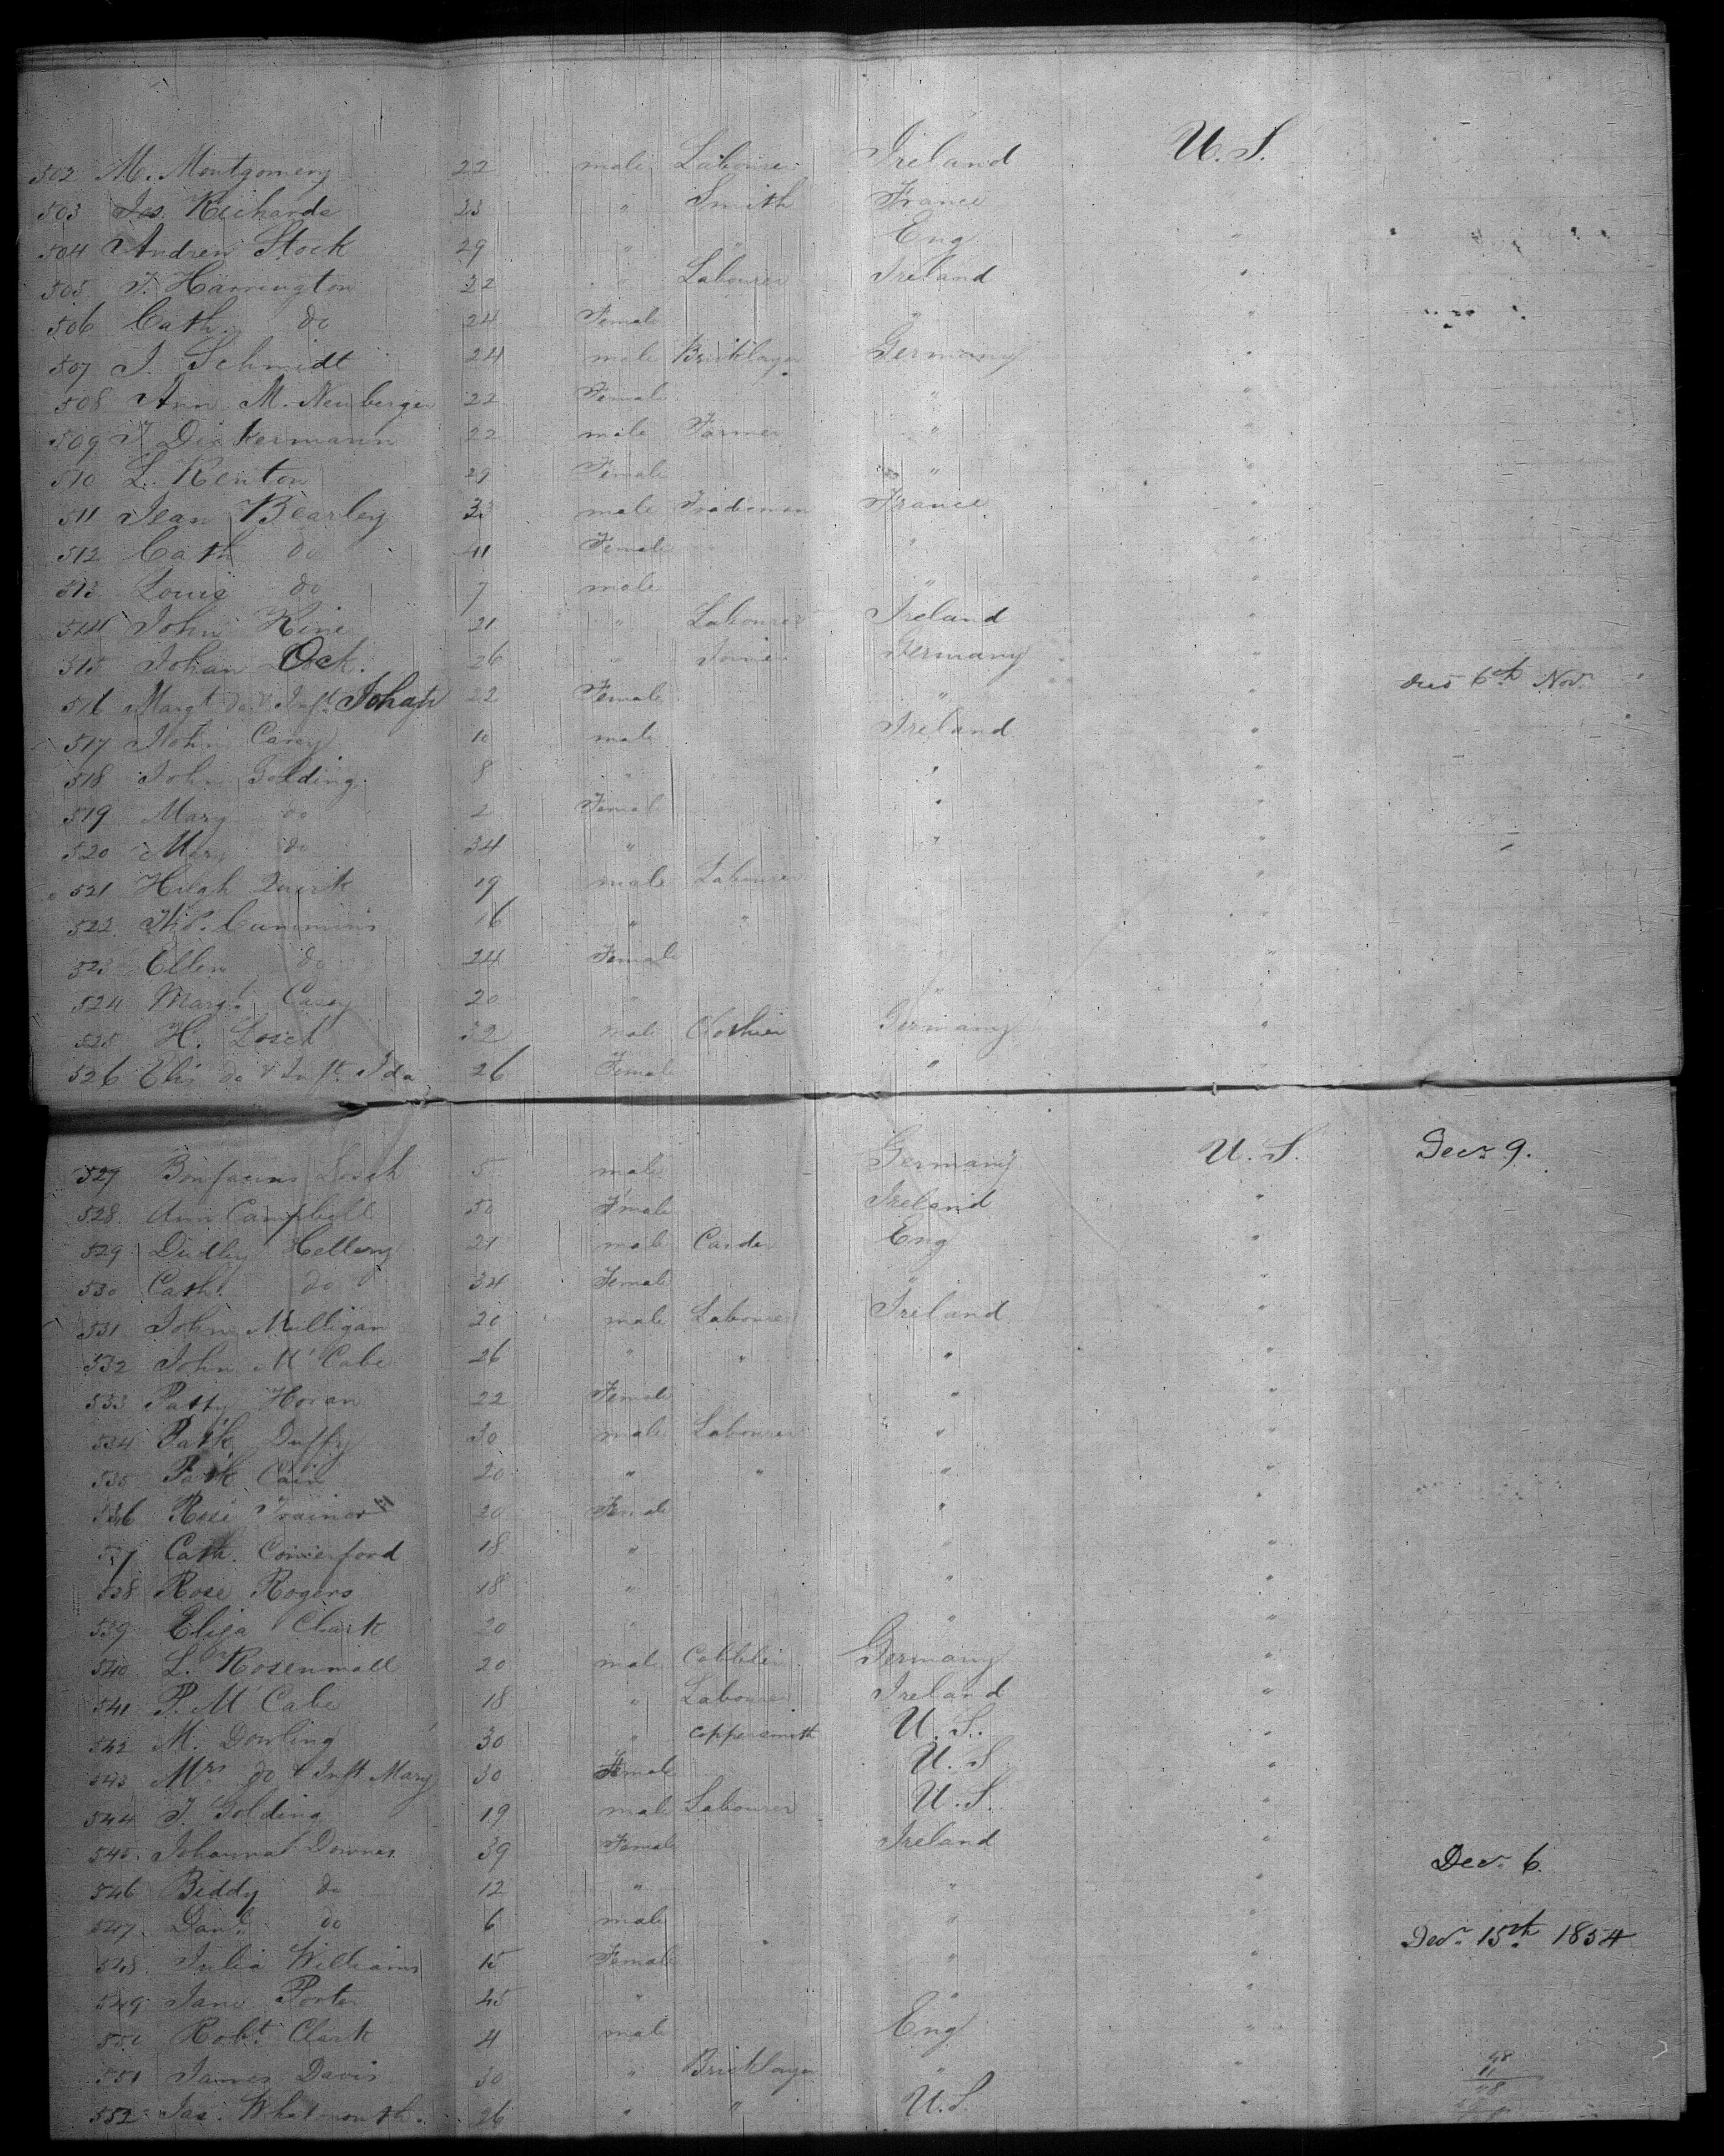 502 M. Montgomery 22 male Labourer Ireland U.S.
503 Jas. Richards 23 " Smith France
504 Andrew Stock 29 " " Eng "
505 T. Harrington 22 " Labourer Ireland "
506 Cath. do 24 Female " "
507 J. Schmidt 24 male Bricklayer Germany "
508 Ann M. Neuberger 22 Female " "
509 J Dickermann 22 male Farmer " "
510 L. Kenton 29 Female " "
511 Jean Bearley 33 male Tradesman France "
512 Cath do 11 Female " "
513 Louis do 7 male " "
514 John Kine 21 " Labourer Ireland "
515 Johan Ock. 26 " Joiner Germany "
516 Margt do & Inft Johan 22 Female " " died 6th Nov.
517 John Carey 10 male Ireland "
518 John Golding 8 " " "
519 Mary do 2 Female " "
520 Mary do 34 " " "
521 Hugh Quirk 19 male Labourer "
522 Cummins 16 " " "
523 Ellen do 24 Female "
524 Margt. Casey 20 " " "
525 H. Losch 32 male Clothier Germany "
526 Elis do & Inft. Ida 26 Female " "
527 Bonfacius Losch 5 male Germany U.S. Decr 9.
528. Ann Campbell 50 Female Ireland "
529 Dudley 21 male Carder Eng "
530 Cath. do 34 Female " "
531 John Mulligan 20 male Labourer Ireland "
532 John McCabe 26 " " " "
533 Patty Horan 22 Female " "
534 Patk. Duffy 30 male Labourer " "
535 Patk Cain 20 " " " "
536 Rose Trainor 20 Female "
537 Cath. Comerford 18 " " "
538 Rose Rogers 18 " "
539 Eliza Clark 20 " " "
540 L. Rosenmall 20 male Cobbler Germany "
541 P. McCabe 18 " Labourer Ireland "
542 M. Dowling 30 " Coppersmith U.S. "
543 Mrs do & Inft Mary 30 Female U.S. "
544 J. Golding 19 male Labourer U.S. "
545. Johannah Downes 39 Female Ireland " Decr 6.
546 Biddy do 12 " " "
547. Danl. do 6 male " " Decr 15th 1854
548. Julia Williams 15 Female " "
549. Jane Porter 45 " " "
550 Robt. Clark 4 male Eng "
551 James Davis 30 " Bricklayer " "
552. Jas. Whatmouth. 26 " " U.S. "